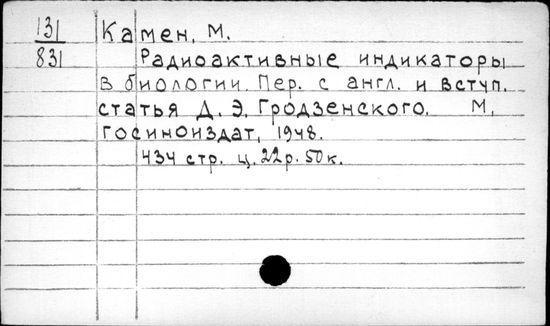 131 Камен, М.
831 Радиоактивные индикаторы
в биологии. Пер. с англ. и вступ.
статья Д. Э. Гродзенского. М,
Госиноиздат, 1948.
434 стр. ц. 22 р. 50 к.